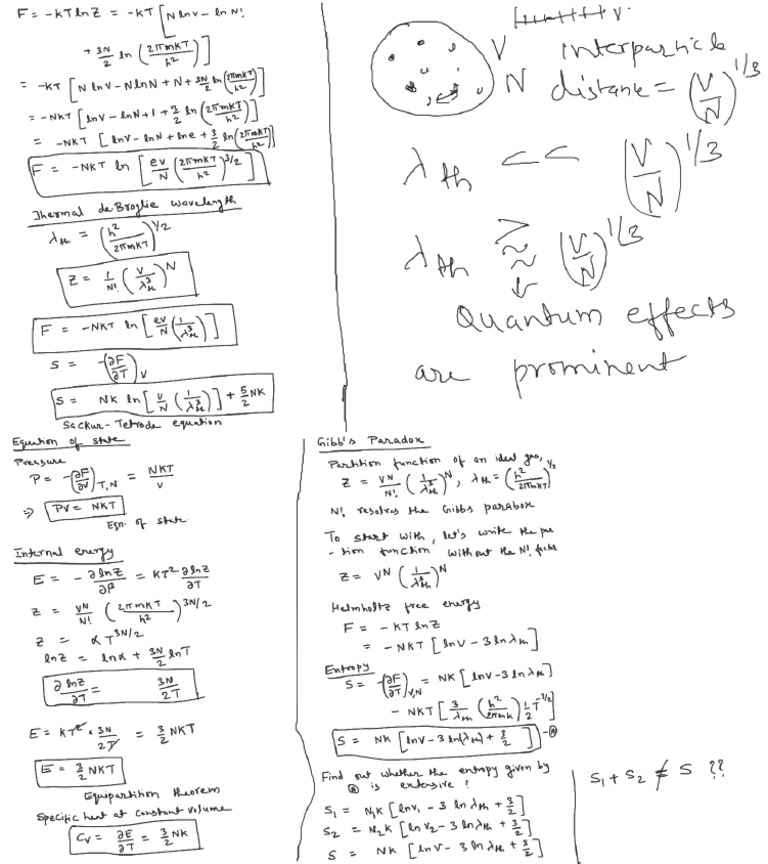 F = -KT ln Z = -KT [N ln V - ln N!
+ 3N/2 ln (2πmKT/h²)]
= -KT [N ln V - N ln N + N + 3N/2 ln (2πmKT/h²)]
= -NKT [ln V - ln N + 1 + 3/2 ln (2πmKT/h²)]
= -NKT [ln V - ln N + ln e + 3/2 ln (2πmKT/h²)]
F = -NKT ln [eV/N (2πmKT/h²)^3/2]
Thermal de Broglie wavelength
λth = (h²/2πmKT)^1/2
Z = 1/N! (V/λth³)^N
F = -NKT ln [eV/N (1/λth³)]
S = -(∂F/∂T)V
S = NK ln [V/N (1/λth³)] + 5/2 NK
Sackur-Tetrode equation
V
V
N
interparticle
distane = (V/N)^1/3
λth << (V/N)^1/3
λth ≳ (V/N)^1/3
Quantum effects
are prominent
Equation of state
Pressure
P = -(∂F/∂V)T,N = NKT/V
⇒ PV = NKT
Eqn. of state
Internal energy
E = - ∂ ln Z/∂β = KT² ∂ ln Z/∂T
Z = V^N/N! (2πmKT/h²)^3N/2
Z = α T^3N/2
ln Z = ln α + 3N/2 ln T
∂ ln Z/∂T = 3N/2T
E = KT² × 3N/2T = 3/2 NKT
E = 3/2 NKT
Equipartition theorem
Specific heat at constant volume
CV = ∂E/∂T = 3/2 NK
Gibb's Paradox
Partition function of an ideal gas,
Z = V^N/N! (1/λth³)^N, λth = (h²/2πmKT)^1/2
N! resolves the Gibbs parabox
To start with, let's write the par
-tion function without the N! facto
Z = V^N (1/λth³)^N
Helmholtz free energy
F = -KT ln Z
= -NKT [ln V - 3 ln λth]
Entropy
S = -(∂F/∂T)V,N = NK [ln V - 3 ln λth]
- NKT [3/λth (h²/2πmk)½ T^-3/2]
S = NK [ln V - 3 ln(λth) + 3/2] - Ⓐ
Find out whether the entropy given by
Ⓐ is extensive?
S1 = N1K [ln V1 - 3 ln λth + 3/2]
S2 = N2K [ln V2 - 3 ln λth + 3/2]
S = NK [ln V - 3 ln λth + 3/2]
S1 + S2 ≠ S ??